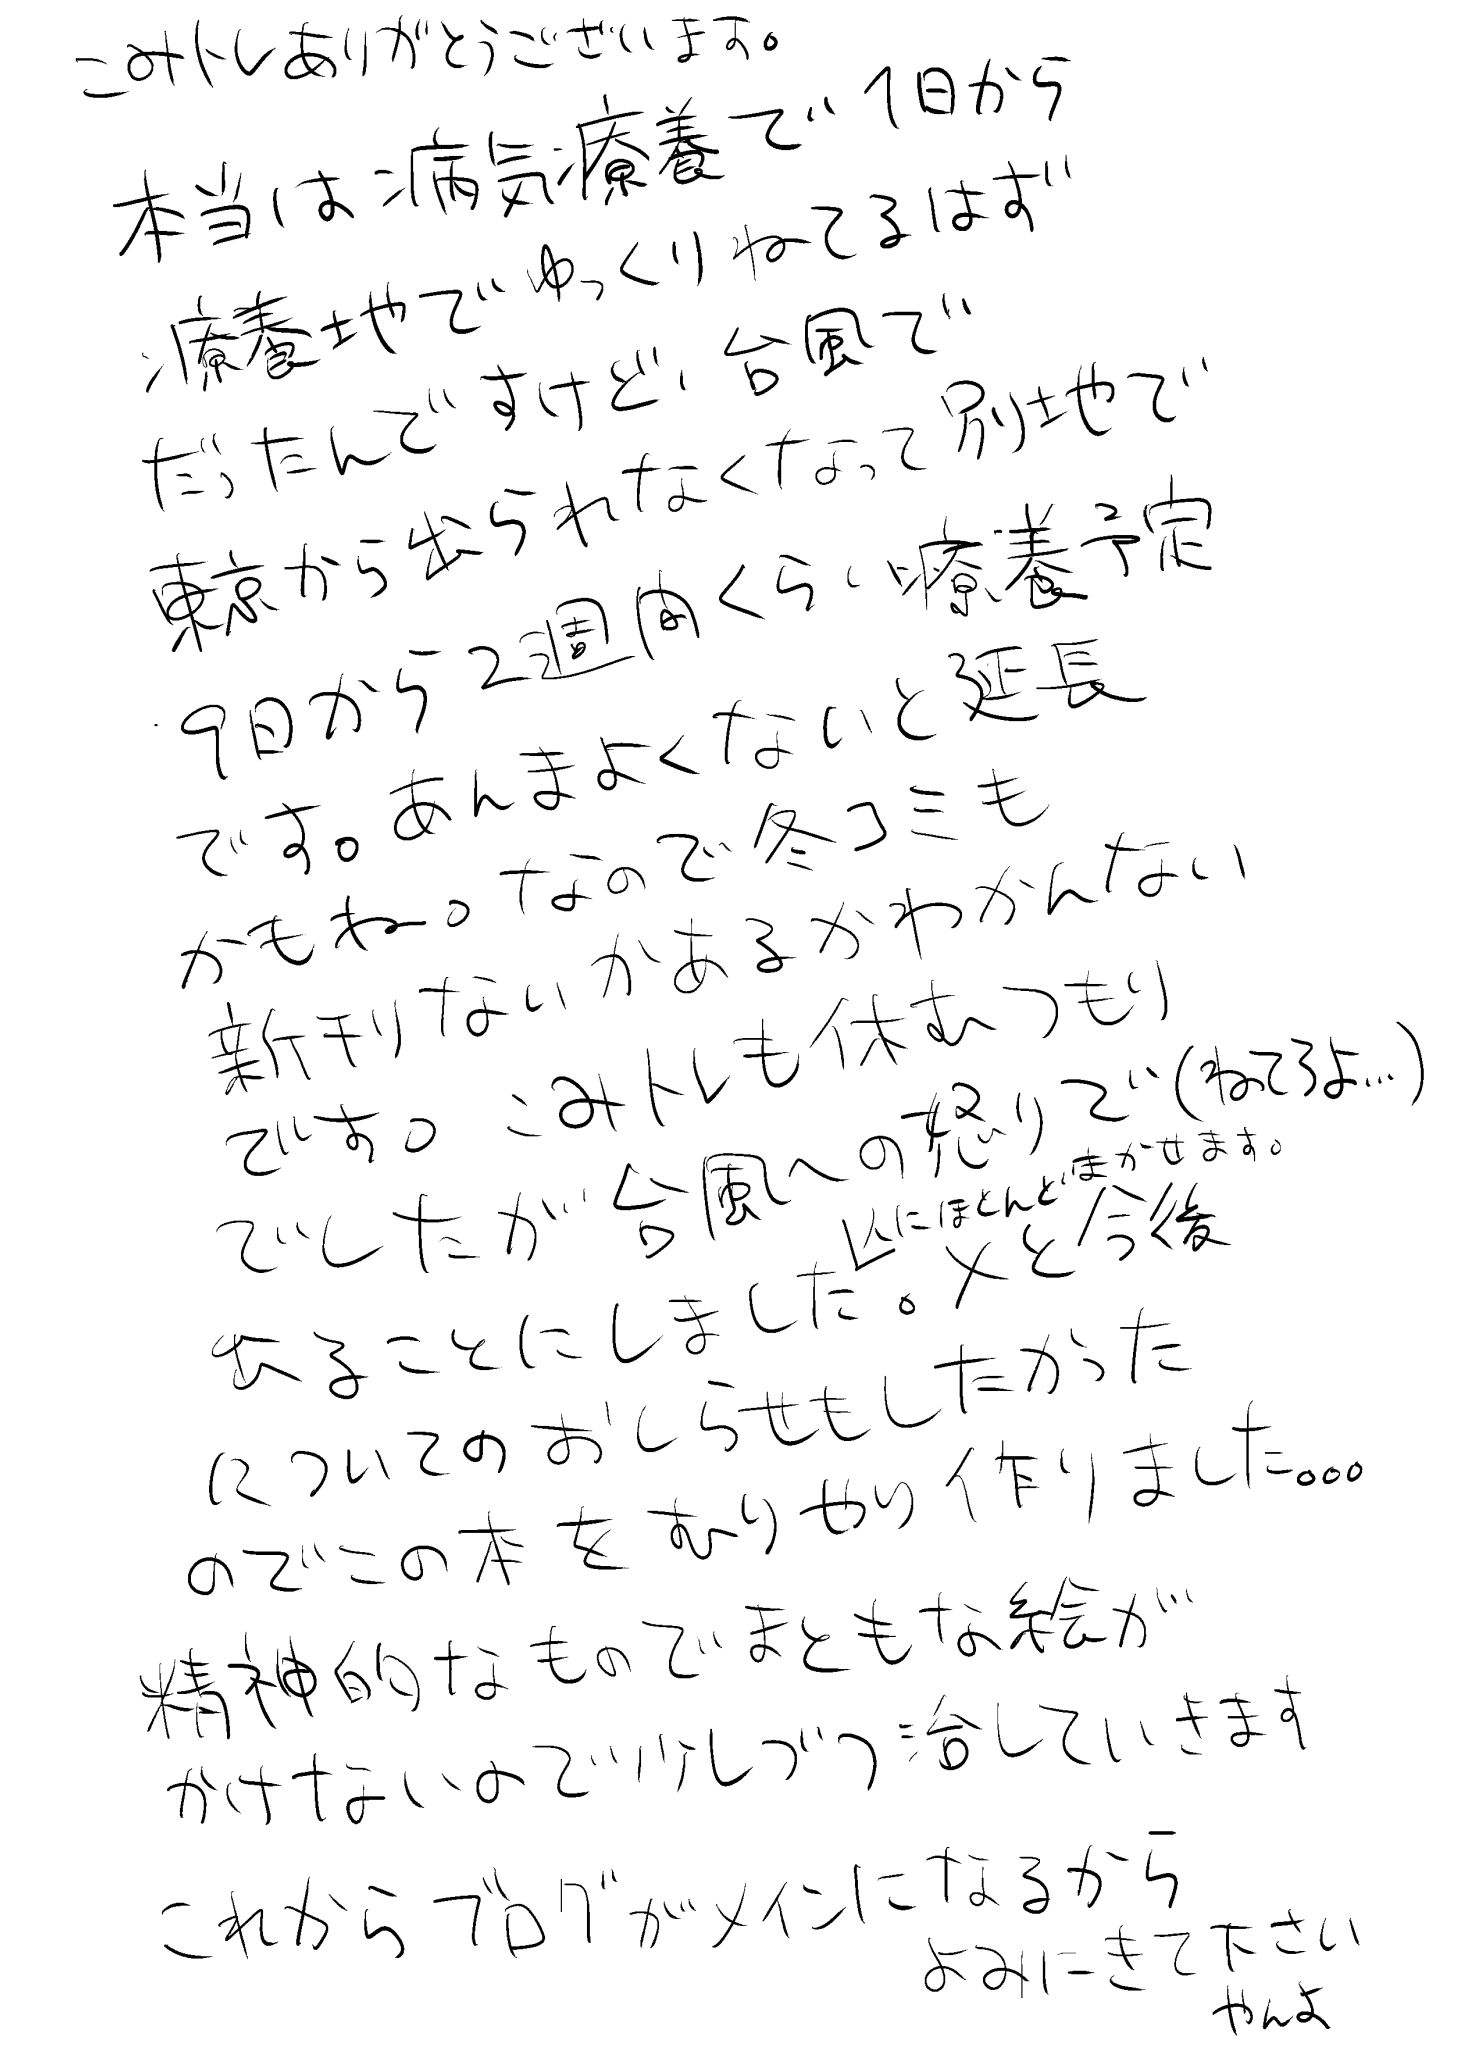 こみトレありがとうございます。
本当は病気療養で1日から
療養地でゆっくりねてるはず
だったんですけど、台風で
東京から出られなくなって別地で
9日から2週間くらい療養予定
です。あんまよくないと延長
かもね。なので冬コミも
新刊ないかあるかわかんない
です。こみトレも休むつもり
でしたが台風への怒りで(ねてろよ…)
出ることにしました。
人にほとんどまかせます。
あと今後
についてのおしらせもしたかった
のでこの本をむりやり作りました…
精神的なものでまともな絵が
かけないので少しづつ治していきます
これからブログがメインになるから
よみにきて下さい
やんよ